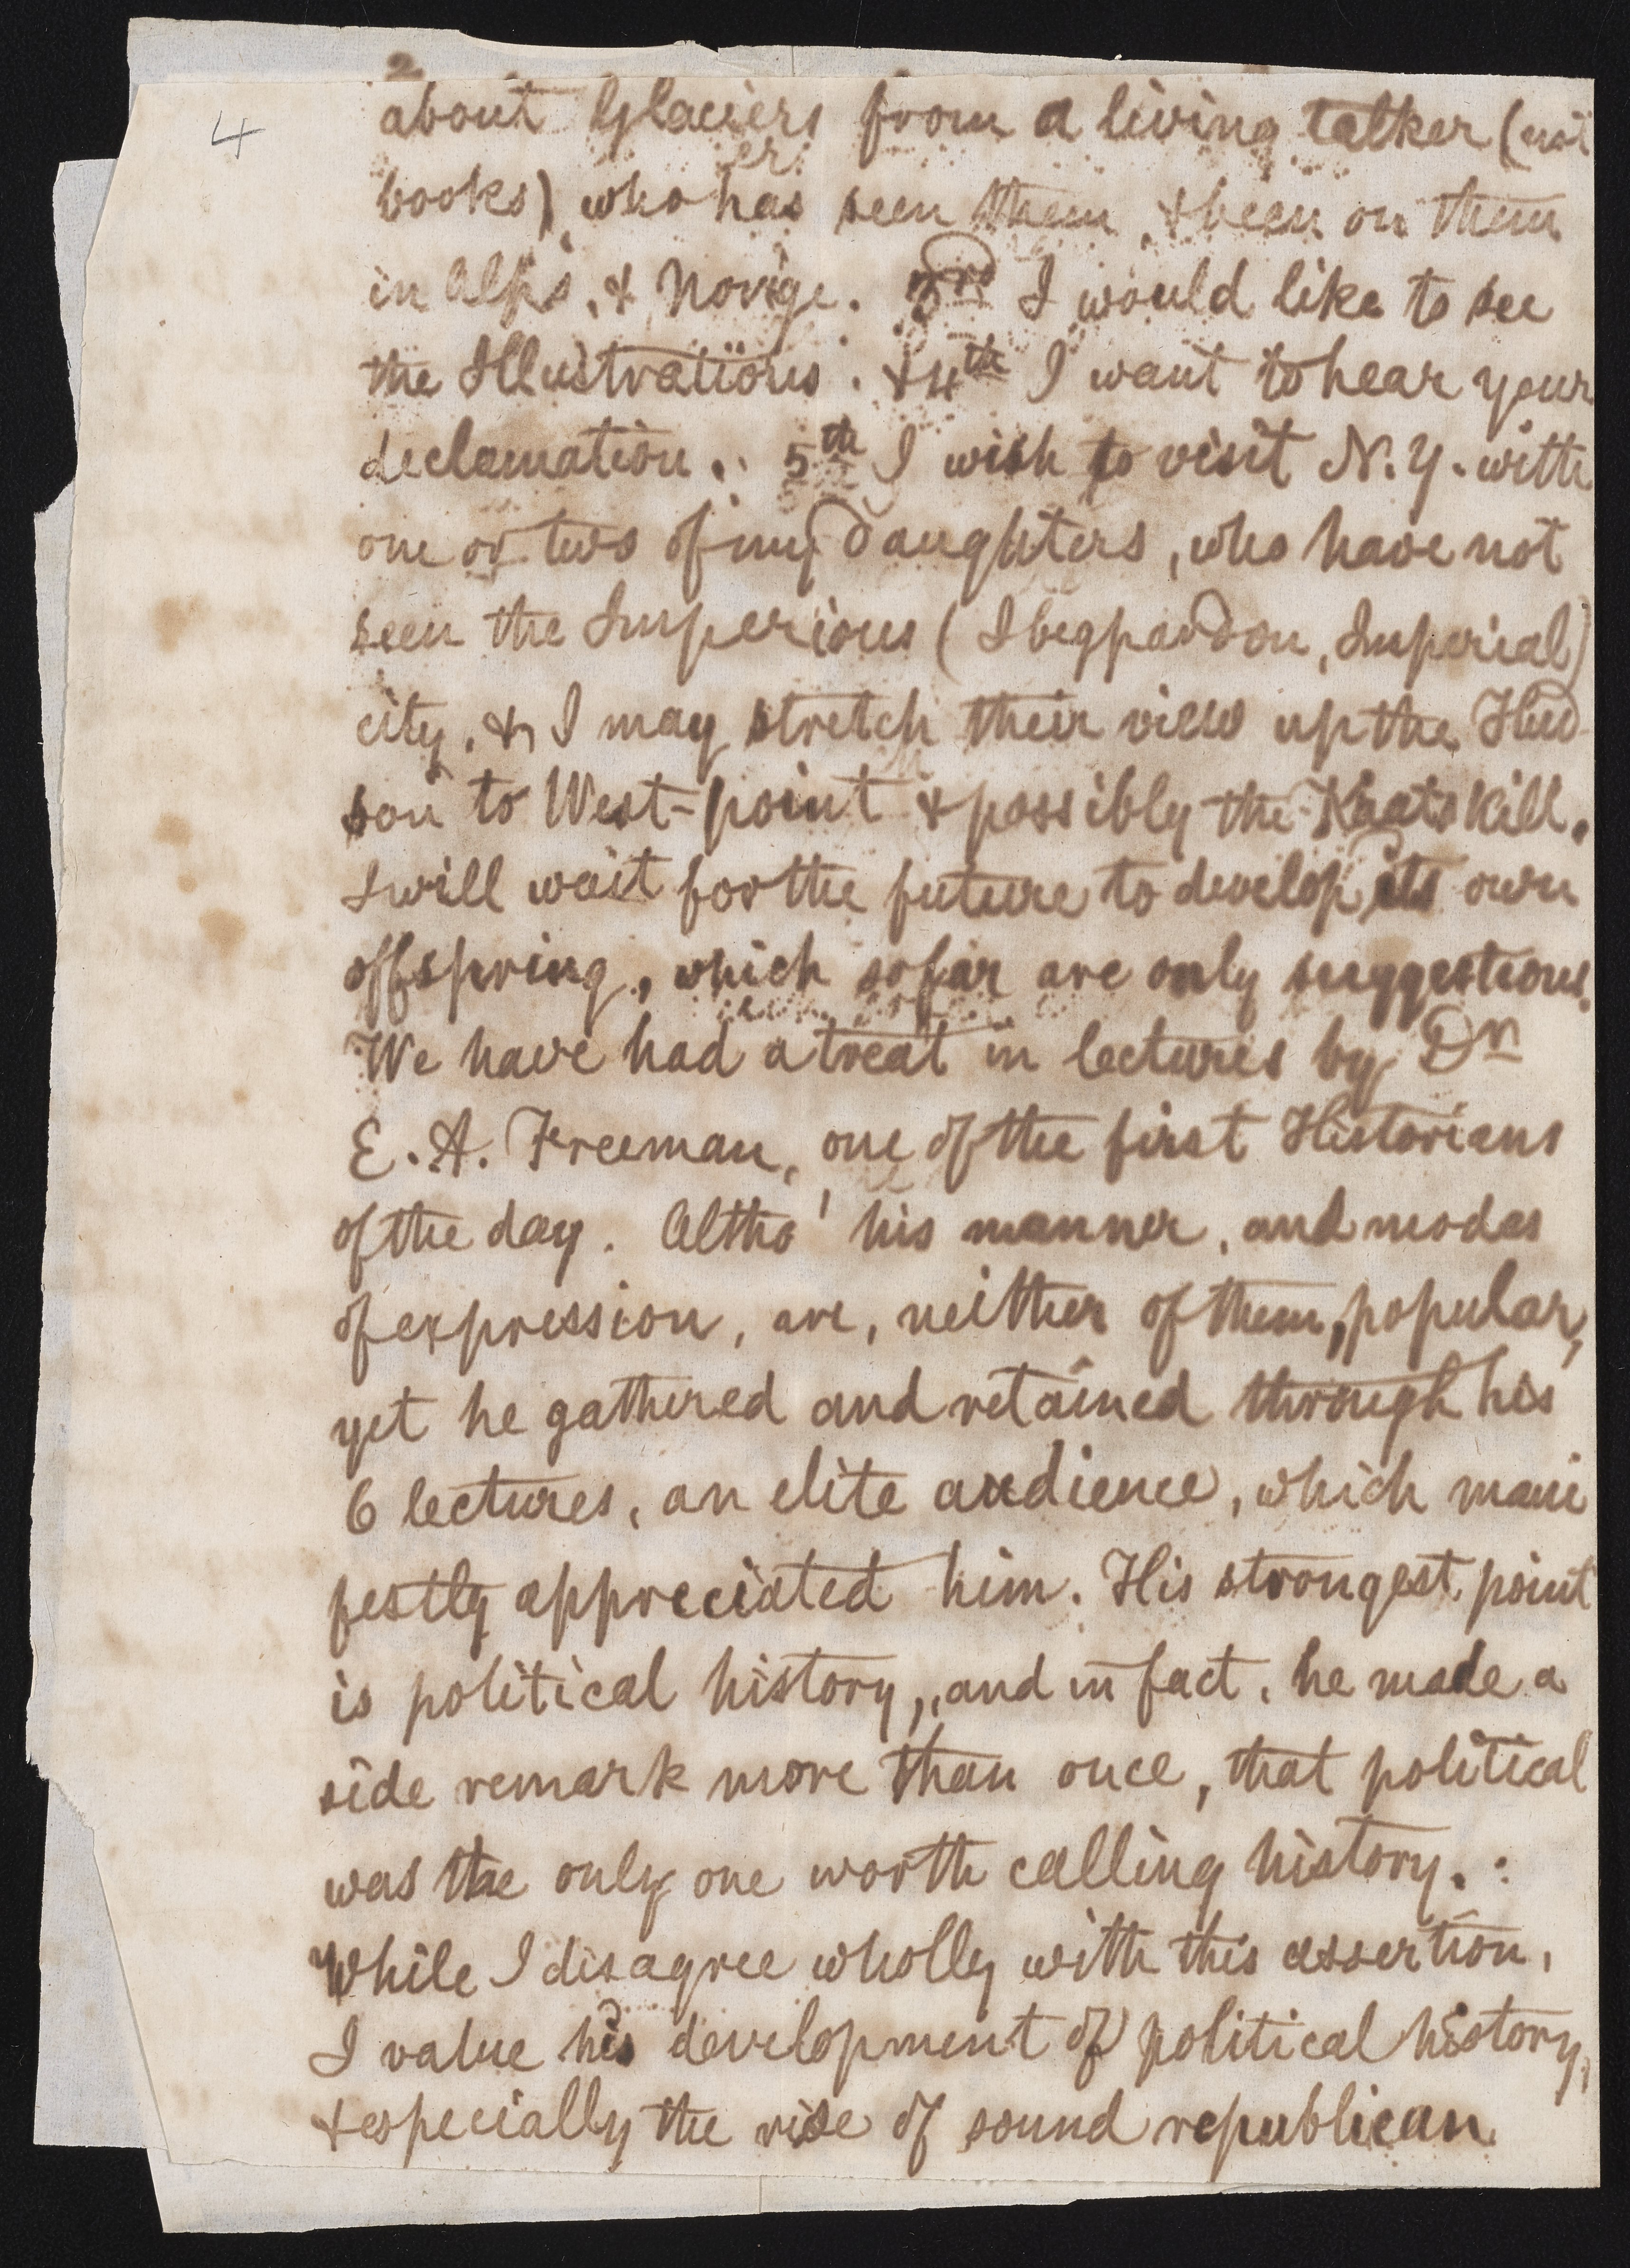 4
about Glaciers from a living talker (not
books) who has seen them, & been on them
in Alps, & Norige. 3rd I would like to see
the Illustrations. & 4th I want to hear your
declamation. 5th I wish to visit N.Y. with
one or two of my daughters, who have not
seen the Imperious (I beg pardon, Imperial)
city, & I may stretch their view up the Hud
son to West-point & possibly the Kaatskill.
I will wait for the future to develop its own
offspring, which so far are only suggestions.
We have had a treat in lectures by Dr
E. A. Freeman, one of the first Historians
of the day. Altho' his manner, and modes
of expression, are, neither of them, popular,
yet he gathered and retained through his
6 lectures, an elite audience, which mani
festly appreciated him. His strongest point
is political history, and in fact, he made a
side remark more than once, that political
was the only one worth calling history. :
While I disagree wholly with this assertion,
I value his development of political history,
& especially the rise of sound republican